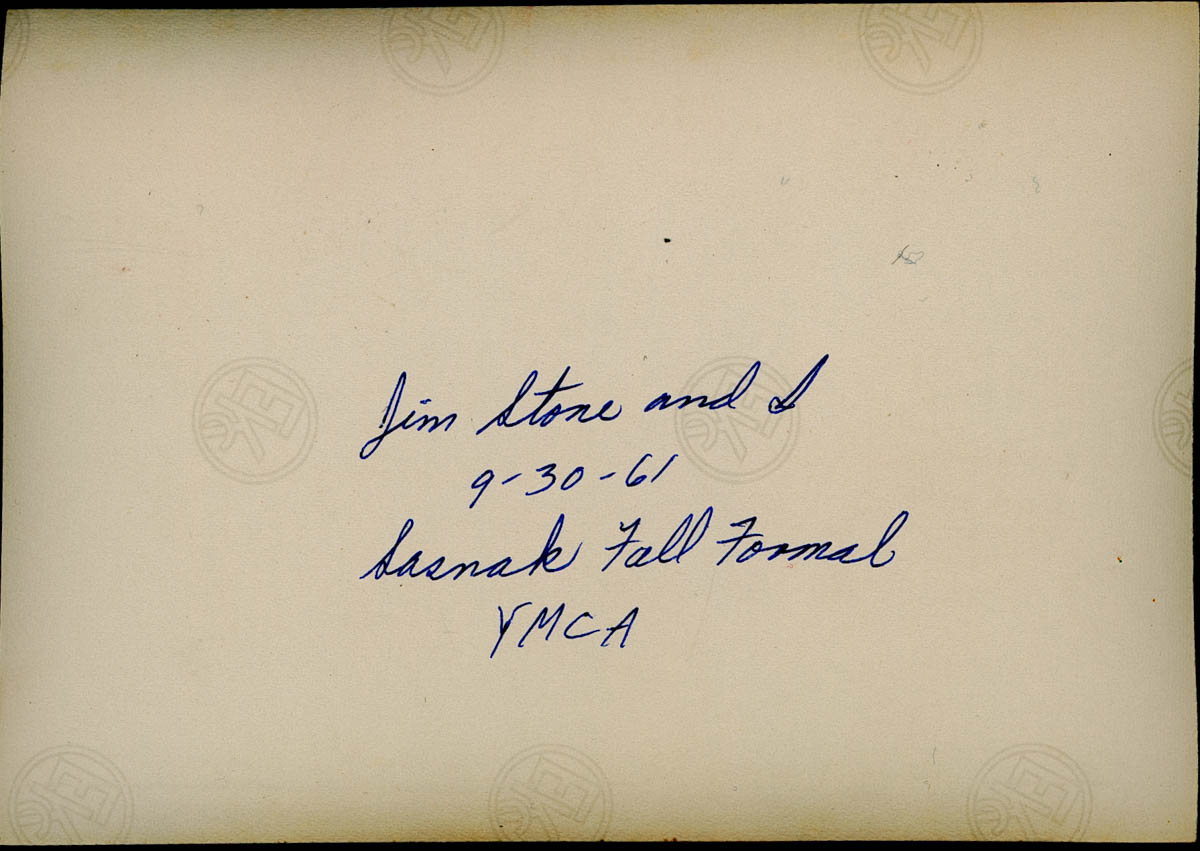 Jim Stone and I
9-30-61
Sasnak Fall Formal
YMCA